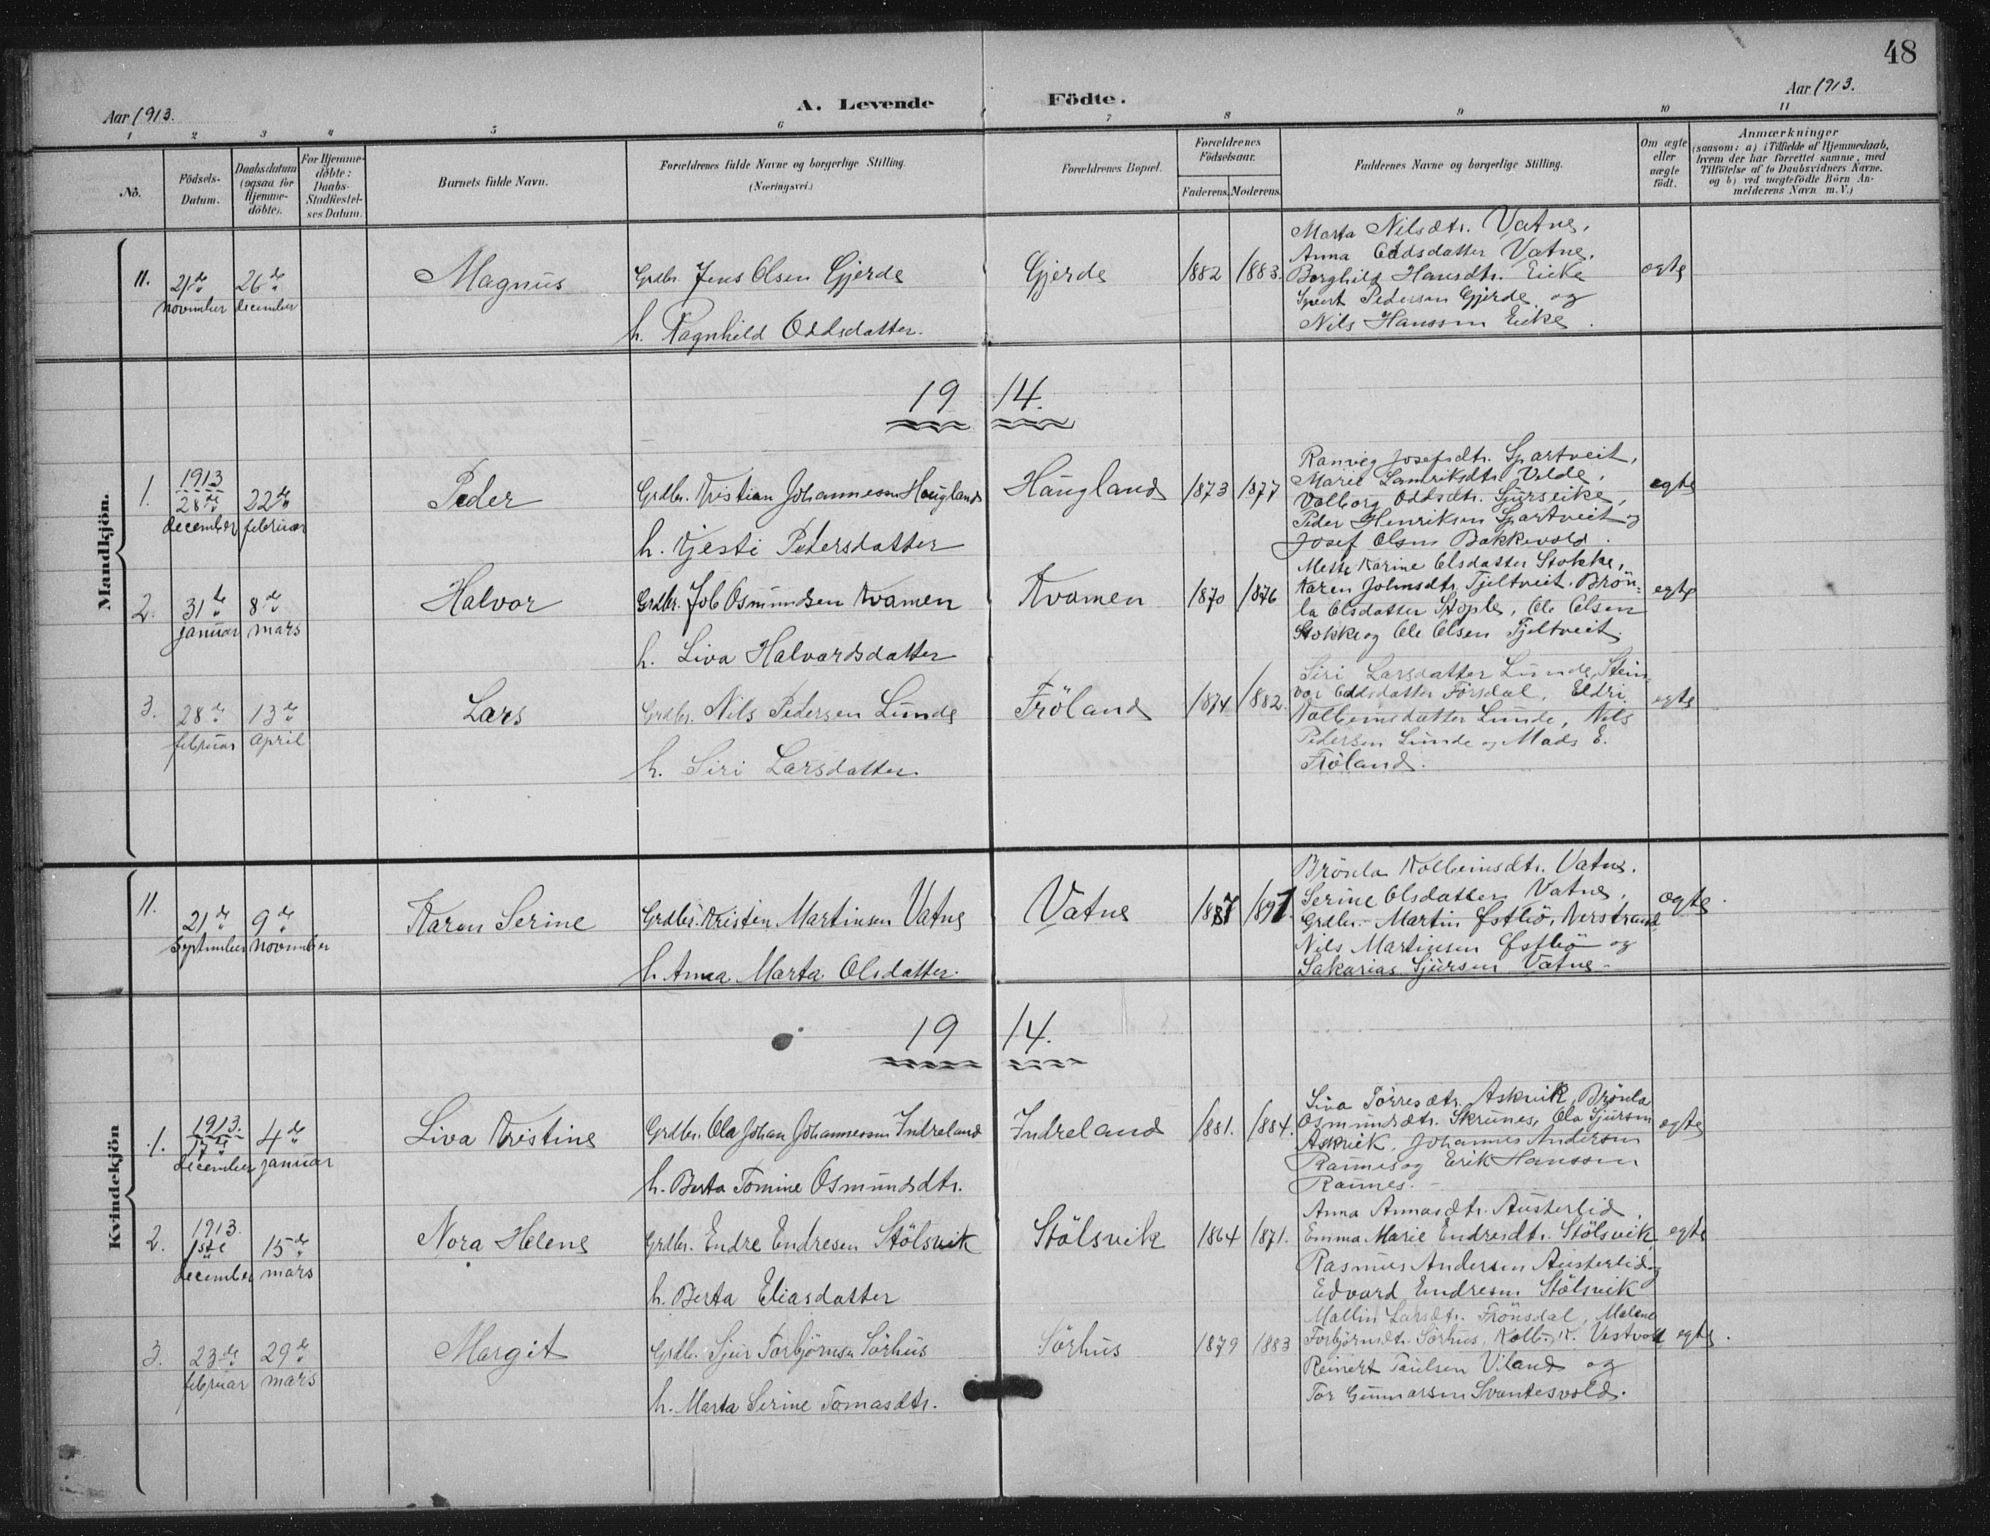 48
Aar 1913.
A. Levende Födte.
Aar 1913.
1 2 3 4 5 6 7 8 9 10 11
No.
Födsels-Datum.
Daabsdatum (ogsaa for Hjemme-döbte).
For Hjemme-döbte: Daabs-Stadfæstel-ses Datum.
Barnets fulde Navn.
Forældrenes fulde Navne og borgerlige Stilling.
(Næringsvei.)
Forældrenes Bopæl.
Forældrenes Födselsaar.
Faderens. Moderens.
Faddernes Navne og borgerlige Stilling.
Om ægte eller uægte födt.
Anmærkninger
(saasom: a) i Tilfælde af Hjemmedaab,
hvem der har forrettet samme, med
Tilföielse af to Daabsvidners Navne.
og b) ved uægtefödte Börn An-
melderens Navn m. V.)
Mandkjön.
11. 21de november 26de december Magnus
Grdbr. Jens Olsen Gjerde
h. Ragnhild Oddsdatter.
Gjerde 1882 1883.
Marta Nilsdtr. Vatne,
Anna Oddsdatter Vatne,
Borghild Hansdtr. Eike
Sjvert Pedersen Gjerde og
Nils Hanssen Eike.
egte
19 14.
1. 1913 28de december 22de februar Peder
Grdbr. Kristian Johannesen Haugland
h. Kjesti Pedersdatter
Haugland 1873 1877
Ranveig Josefsdtr. Spartveit,
Marie Lamriksdtr. Velde,
Valborg Oddsdtr. Sjurseike,
Peder Henriksen Spartveit og
Josef Olsen Bakkevold.
egte
2. 31te januar 8de mars Halvor
Grdbr. Job Osmundsen Kvamen
h. Liva Halvardsdatter
Kvamen 1870 1876
Mette Karine Olsdatter Stokke,
Karen Johnsdtr. Tjeltveit, Brön-
la Olsdatter Stople, Ole Olsen
Stokke og Ole Olsen Tjeltveit.
egte
3. 28de februar 13de april Lars
Grdbr. Nils Pedersen Lunde
h. Siri Larsdatter.
Fröland 1874 1882.
Siri Larsdatter Lunde, Stein-
vor Oddsdatter Førsdal, Eldri
Kolbeinsdatter Lunde, Nils
Pedersen Lunde og Mads E.
Fröland.
egte
Kvindekjön
11. 21de september 9de november Karen Serine
Grdbr. Kristen Martinsen Vatne
h. Anna Marta Olsdatter.
Vatne 1887 1891.
Brönla Kolbeinsdtr. Vatne.
Serine Olsdatter Vatne,
Grdbr. Martin Østbö, Nerstrand
Nils Martinsen Østbö og
Sakarias Sjursen Vatne.
egte.
19 14.
1. 1913. december 4de januar Liva Kristine
Grdbr. Ola Johan Johannessen Indreland
h. Berta Tomine Osmundsdtr.
Indreland 1881. 1884.
Liva Torresdtr. Askvik, Brönla
Osmundsdtr. Skrunes, Ola Sjursen
Askvik, Johannes Andersen
Raunes og Erik Hanssen
Raunes.
egte
2. 1913. 1ste december 15de mars Nora Helene
Grdbr. Endre Endresen Stölsvik
h. Berta Eliasdatter
Stölsvik 1864 1871.
Anna Annasdtr. Austerlid,
Emma Marie Endresdtr. Stölsvik,
Rasmus Andersen Austerlid og
Edvard Endresen Stölsvik
egte
3. 23de februar 29de mars Margit
Grdbr. Sjur Torbjörnsen Sörhus
h. Marta Serine Tomasdtr.
Sörhus 1879 1883
Mallin Larsdtr. Frönsdal, Malene
Torbjörnsdtr. Sörhus, Kolb. K. Vestvold
Reinert Paulsen Viland og
Tor Gunnarsen Svantesvold.
egte.